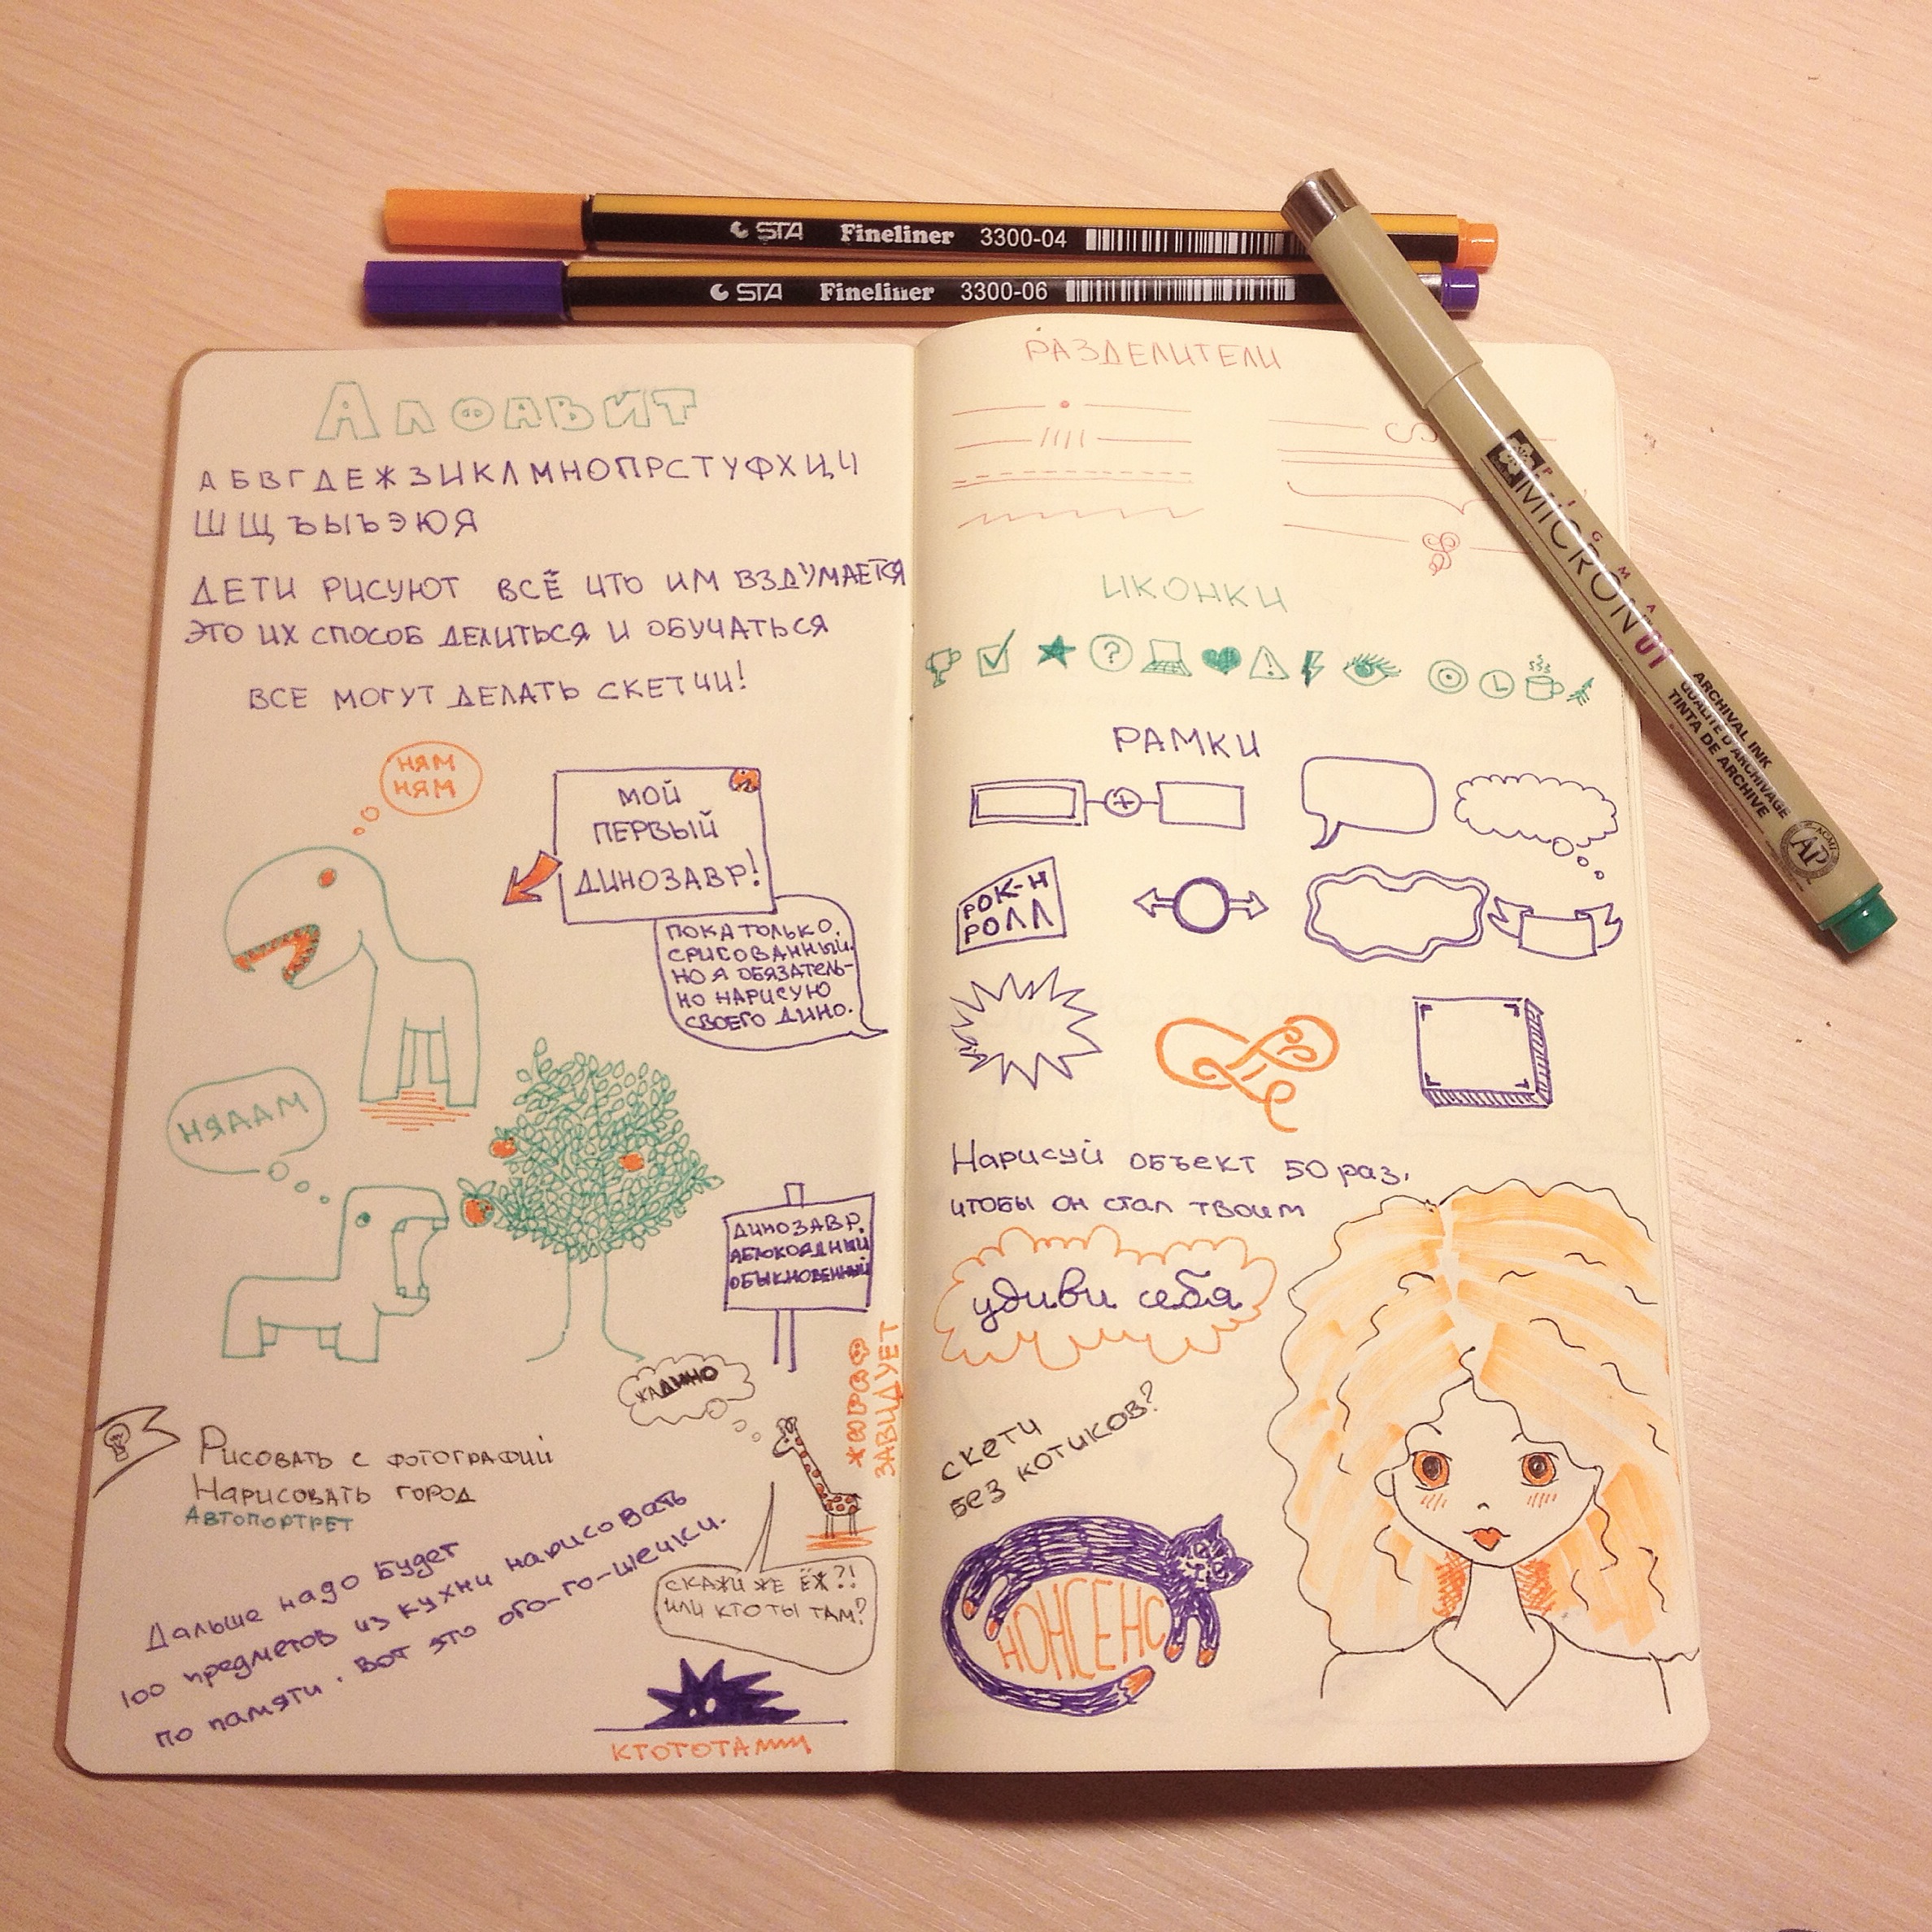 STA Fineliner 3300-04
STA Fineliner 3300-06
PIGMA
MICRON 01
ARCHIVAL INK
QUALITE D'ARCHIVAGE
TINTA DE ARCHIVE
ACMI
AP
АЛФАВИТ
А Б В Г Д Е Ж З И К Л М Н О П Р С Т У Ф Х Ц Ч
Ш Щ Ъ Ы Ъ Э Ю Я
ДЕТИ РИСУЮТ ВСЁ ЧТО ИМ ВЗДУМАЕТСЯ
ЭТО ИХ СПОСОБ ДЕЛИТЬСЯ И ОБУЧАТЬСЯ
ВСЕ МОГУТ ДЕЛАТЬ СКЕТЧИ!
НЯМ
НЯМ
МОЙ
ПЕРВЫЙ
ДИНОЗАВР!
ПОКА ТОЛЬКО
СРИСОВАННЫЙ.
НО Я ОБЯЗАТЕЛЬ-
НО НАРИСУЮ
СВОЕГО ДИНО.
НЯААМ
ДИНОЗАВР.
ЯБЛОКОЯДНЫЙ
ОБЫКНОВЕННЫЙ
ДИНО
ЖИРАФ
ЗАВИДУЕТ
Рисовать с фотографий
Нарисовать город
Автопортрет
Дальше надо будет
100 предметов из кухни нарисовать
по памяти. Вот это ого-го-шечки.
СКАЖИ ЖЕ ЁЖ?!
ИЛИ КТО ТЫ ТАМ?
КТОТОТАМ
РАЗДЕЛИТЕЛИ
ИКОНКИ
?
!
РАМКИ
РОК-Н
РОЛЛ
Нарисуй объект 50 раз,
чтобы он стал твоим
удиви себя
скетч
без котиков?
НОНСЕНС